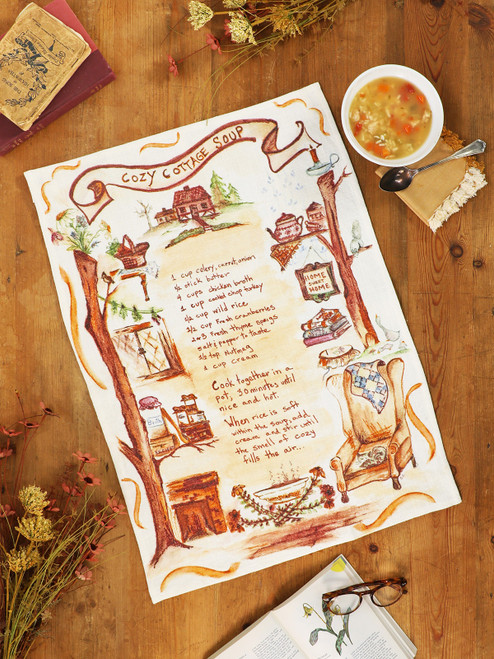 COZY COTTAGE SOUP
1 cup celery, carrot, onions
½ stick butter
4 cups chicken broth
1 cup cooked chop turkey
½ cup wild rice
½ cup fresh cranberries
2 or 3 fresh thyme sprigs
salt & pepper to taste
½ tsp. nutmeg
1 cup cream
Cook together in a
pot, 30 minutes until
nice and hot.
When rice is soft
within the soup, add
cream and stir until
the smell of cozy
fills the air...
HOME
SWEET
HOME